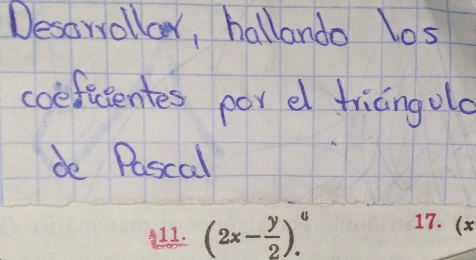 Desarrollar, hallando los
coeficientes por el triángulo
de Pascal
11. (2x − y/2)⁶. 17. (x